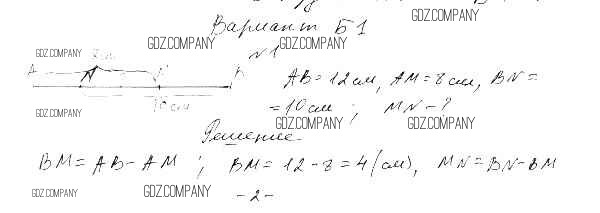 GDZ.COMPANY
Вариант Б1
GDZ.COMPANY GDZ.COMPANY
GDZ.COMPANY
№1
A N B
10 см
AB = 12 см, AM = 8 см, BN =
= 10 см; MN - ?
GDZ.COMPANY
GDZ.COMPANY GDZ.COMPANY
Решение.
BM = AB - AM; BM = 12 - 8 = 4 (см), MN = BN - BM
GDZ.COMPANY GDZ.COMPANY
- 2 -